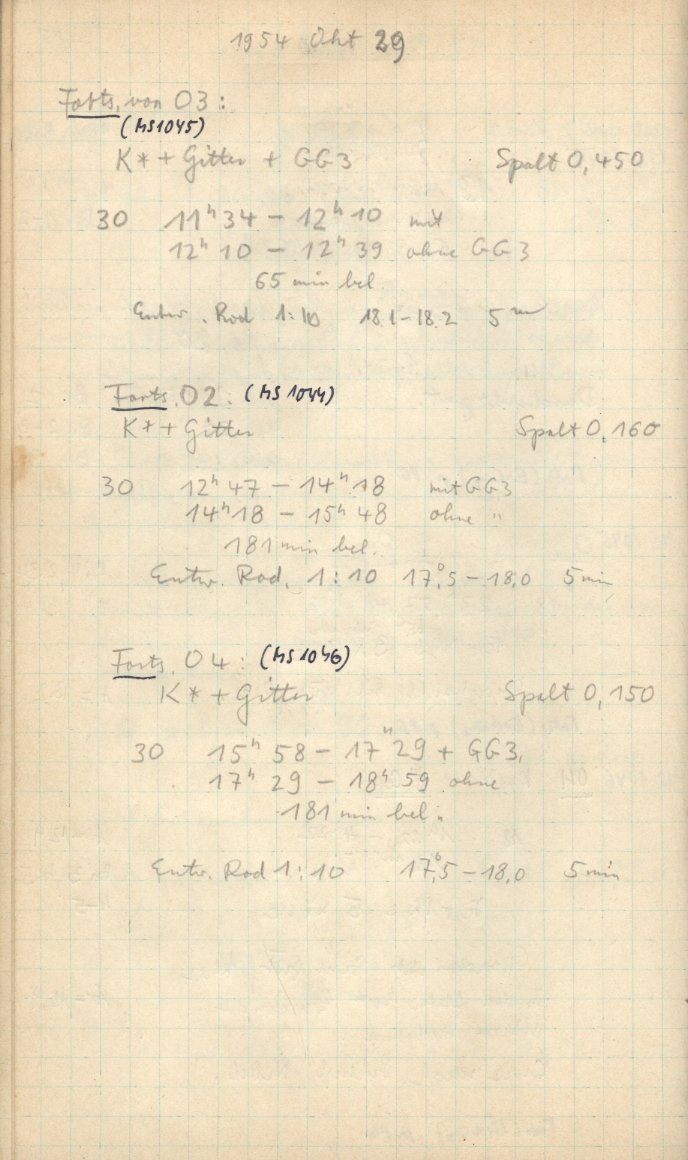 1954 Okt 29
Forts. von O3:
(MS1045)
K* + Gitter + GG3 Spalt 0,450
30 11ʰ34 – 12ʰ10 mit
12ʰ10 – 12ʰ39 ohne GG3
65 min bel.
Entw. Rod 1:10 18.1–18.2 5ᵐ
Forts. O2: (MS1044)
K* + Gitter Spalt 0,160
30 12ʰ47 – 14ʰ18 mit GG3
14ʰ18 – 15ʰ48 ohne "
181 min bel.
Entw. Rod. 1:10 17°,5 – 18,0 5 min
Forts. O4: (MS1046)
K* + Gitter Spalt 0,150
30 15ʰ58 – 17ʰ29 + GG3,
17ʰ29 – 18ʰ59 ohne
181 min bel.
Entw. Rod 1:10 17°,5 – 18,0 5 min